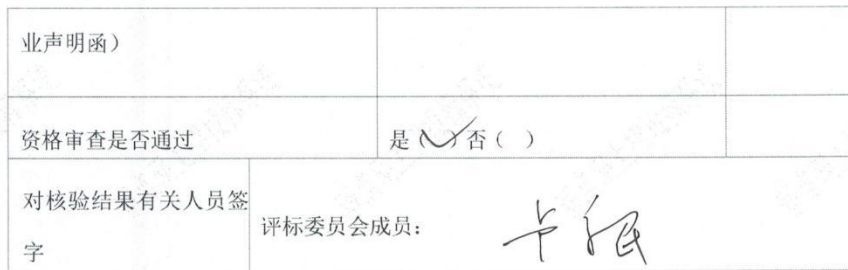 业声明函）
资格审查是否通过
是（✓）否（ ）
对核验结果有关人员签
字
评标委员会成员：